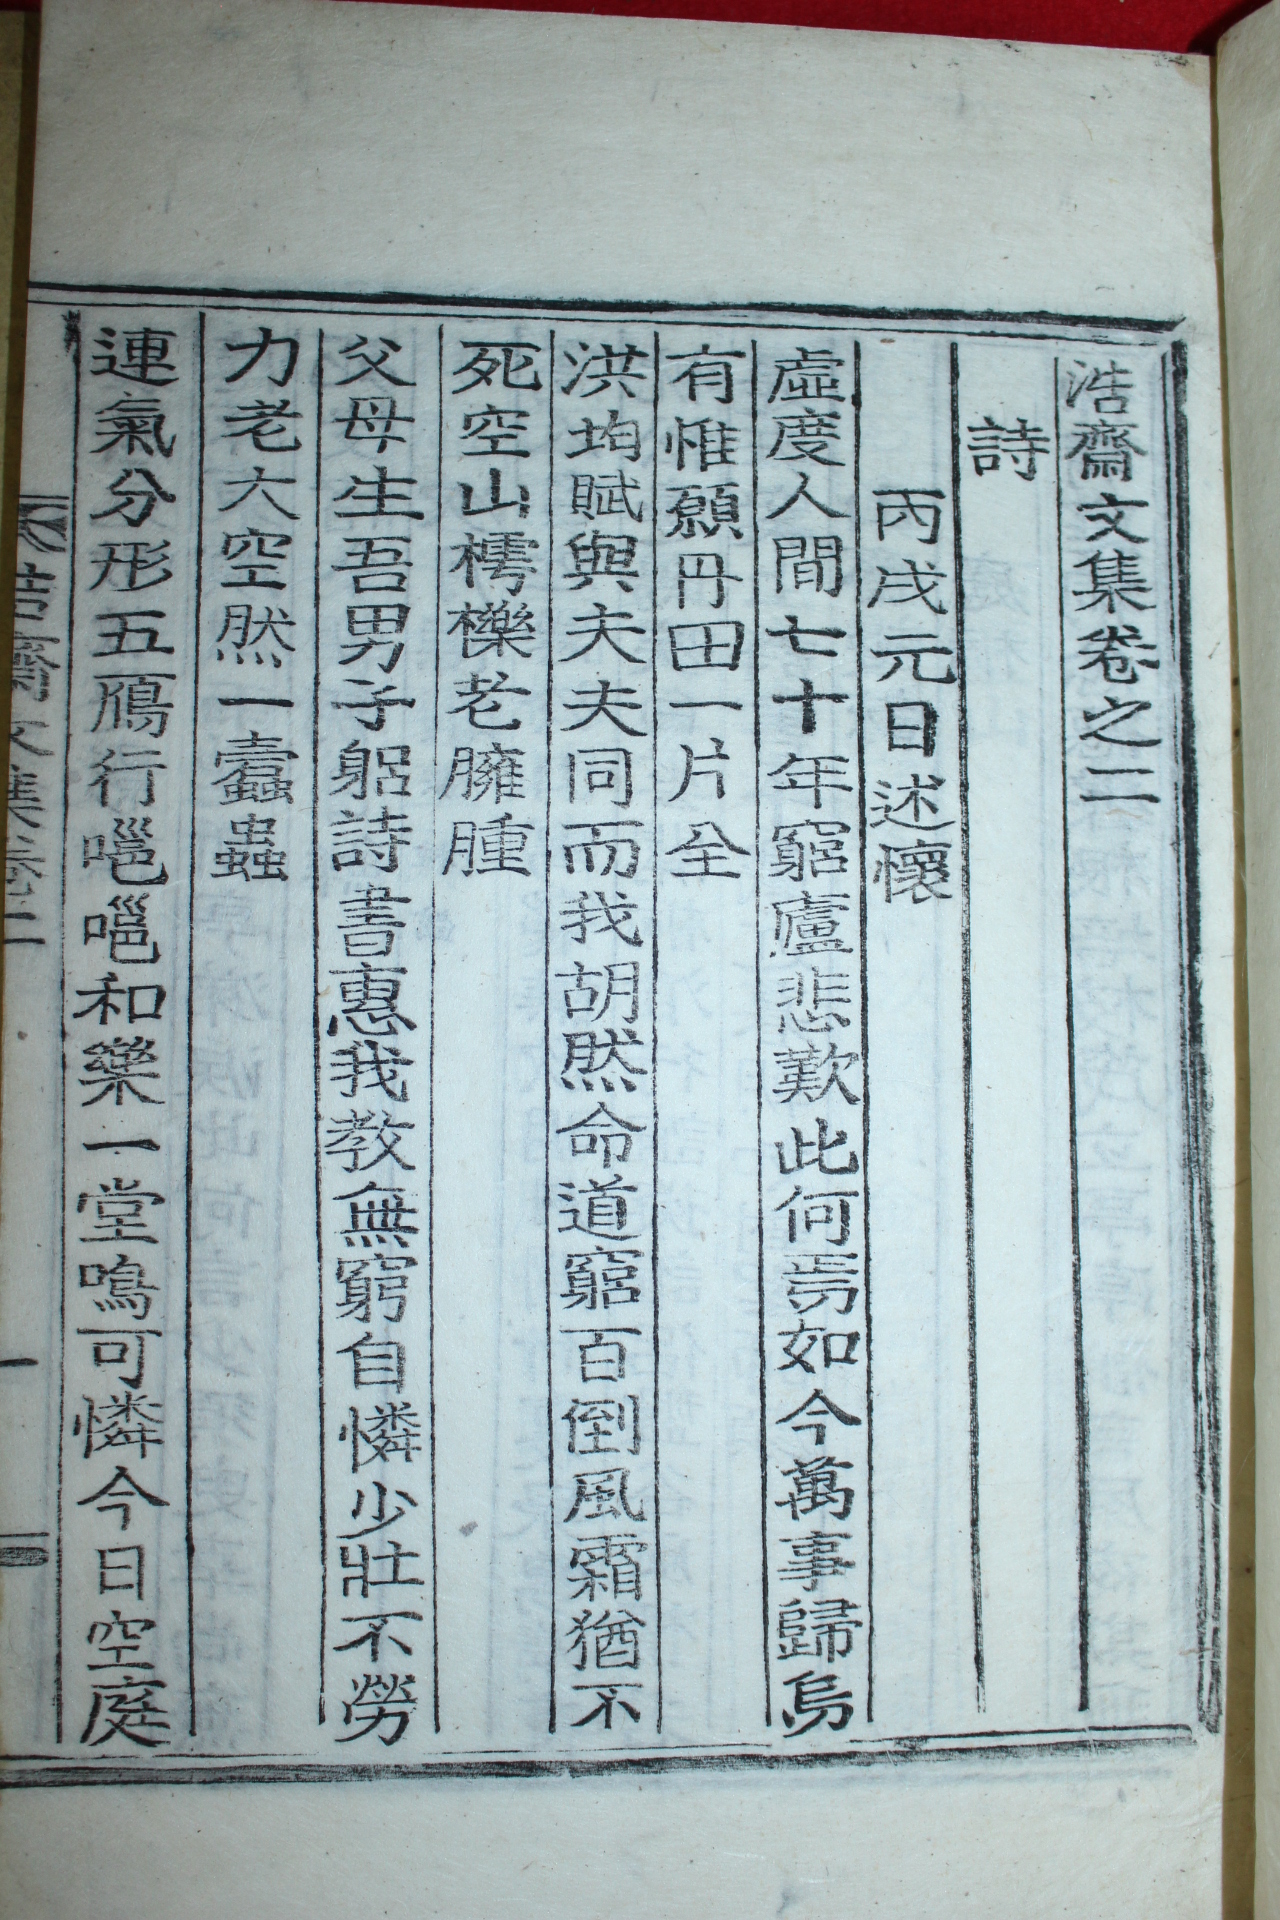 浩齋文集卷之二
詩
丙戌元日述懷
虛度人間七十年窮廬悲歎此何焉如今萬事歸烏
有惟願丹田一片全
洪均賦與夫夫同而我胡然命道窮百倒風霜猶不
死空山樗櫟老臃腫
父母生吾男子躳詩書惠我敎無窮自憐少壯不勞
力老大空然一蠹蟲
連氣分形五鴈行嗈嗈和樂一堂鳴可憐今日空庭
浩齋文集卷二
一